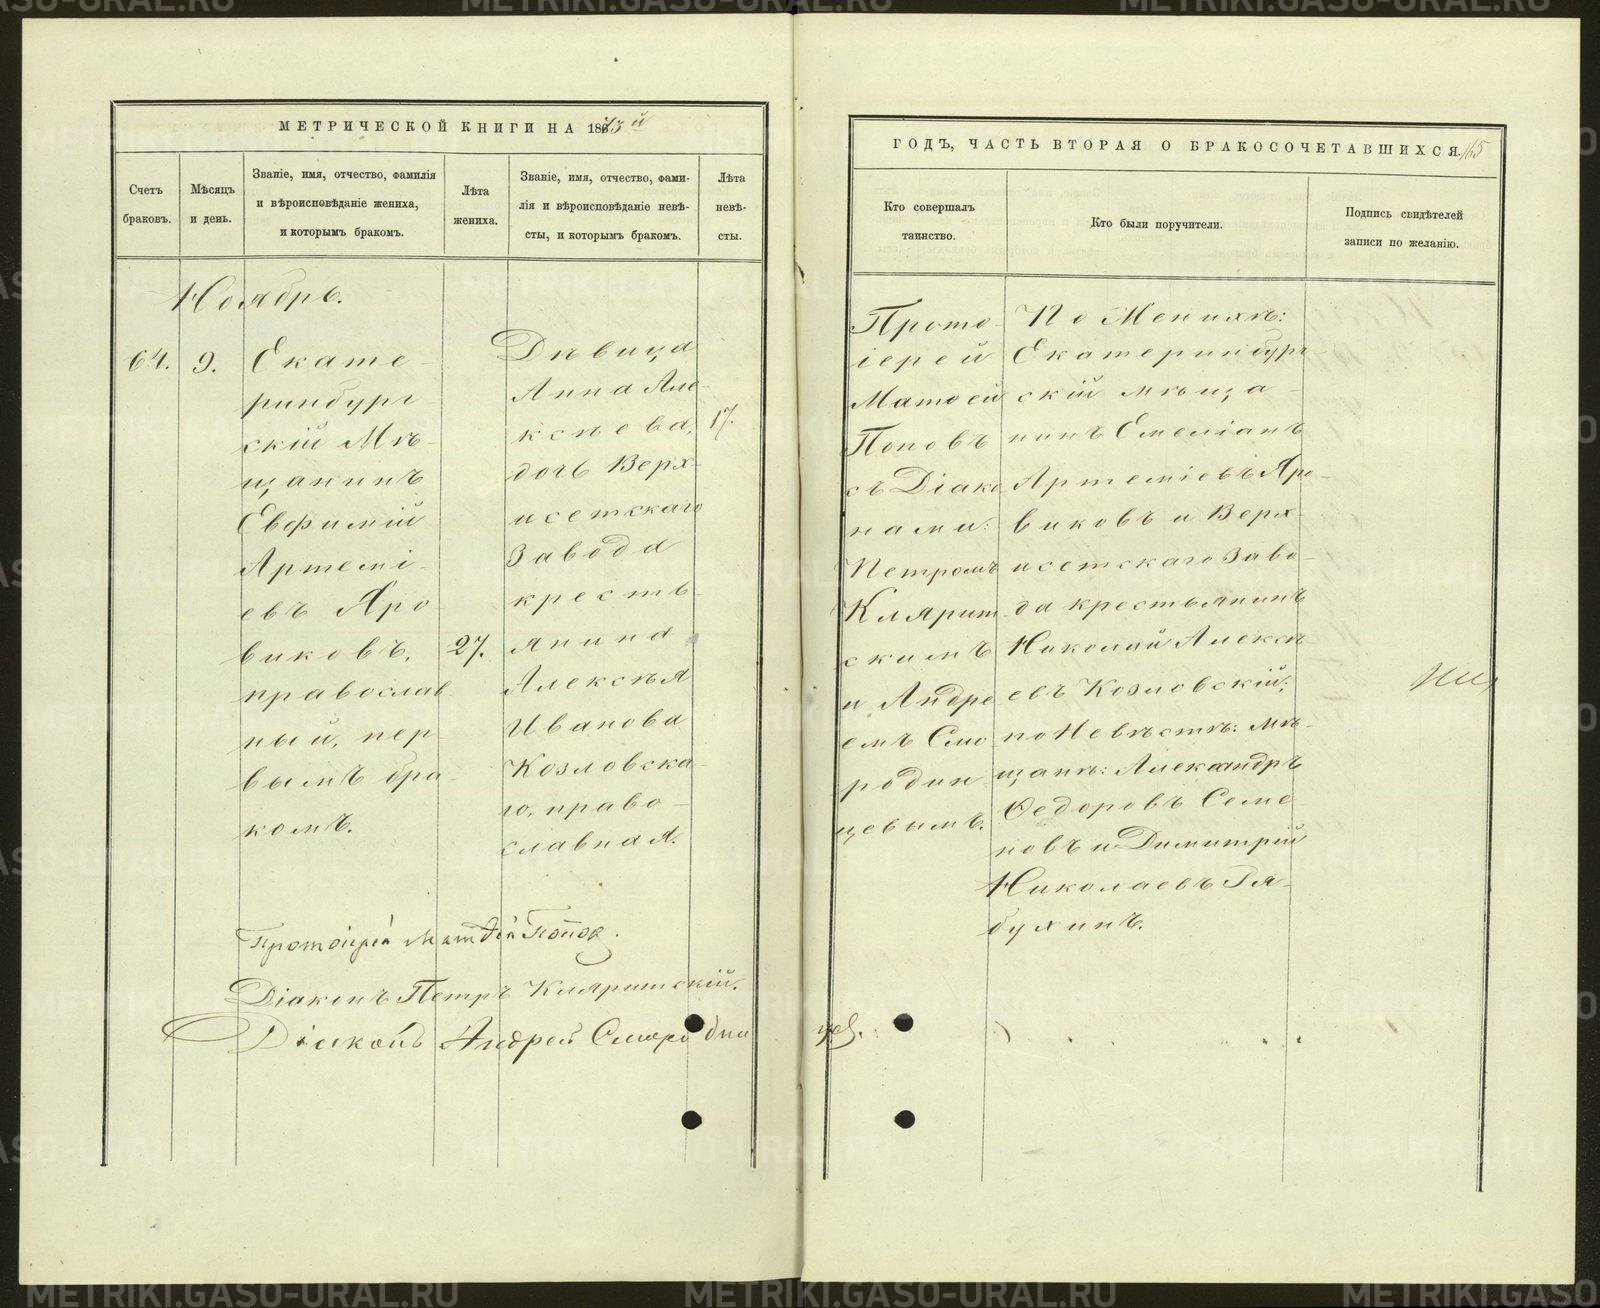 МЕТРИЧЕСКОЙ КНИГИ НА 1873й
Счетъ браковъ.
Мѣсяцъ и день.
Званіе, имя, отчество, фамилія
и вѣроисповѣданіе жениха,
и которымъ бракомъ.
Лѣта жениха.
Званіе, имя, отчество, фами-
лія и вѣроисповѣданіе невѣ-
сты, и которымъ бракомъ.
Лѣта невѣ-
сты.
Ноябрь.
64.
9.
Екате-
ринбург
скій Мѣ-
щанинъ
Евфимій
Артемі-
евъ Яро
виковъ,
православ
ный, пер
вымъ бра-
комъ.
27.
Дѣвица
Анна Але-
ксѣева,
дочь Верх-
исетскаго
Завода
кресть-
янина
Алексѣя
Иванова
Козловска-
го, право-
славная.
17.
Протоіерей Матѳей Поповъ.
Діаконъ Петръ Кляритскій.
Діаконъ Андрей Смороди
ГОДЪ, ЧАСТЬ ВТОРАЯ О БРАКОСОЧЕТАВШИХСЯ.
165
Кто совершалъ
таинство.
Кто были поручители.
Подпись свидѣтелей
записи по желанію.
Прото-
іерей
Матѳей
Поповъ
съ Діако
нами:
Петромъ
Клярит
скимъ
и Андре
емъ Смо
родин
цевымъ.
По Женихѣ:
Екатеринбург
скій мѣща-
нинъ Емеліанъ
Артеміевъ Яро-
виковъ и Верх-
исетскаго Заво-
да крестьянинъ
Николай Алексѣ
евъ Козловскій;
по Невѣстѣ: Мѣ-
щане: Александръ
Ѳедоровъ Семе
новъ и Димитрій
Николаевъ Ря-
бухинъ.
METRIKI.GASO-URAL.RU